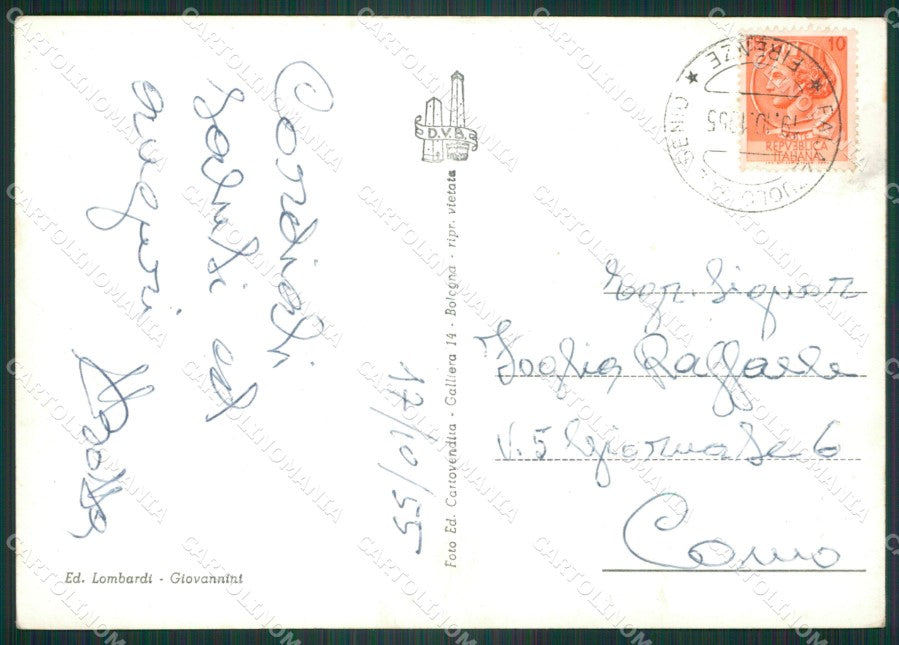 Cordiali
saluti ed
auguri
17/10/55
D.V.B.
Foto Ed. Cartovendita - Galliera 14 - Bologna - ripr. vietata
Ed. Lombardi - Giovannini
10
REPVBBLICA
ITALIANA
FIRENZE
PALAZZUOLO SUL SENIO
19.10.1955
Egr. Signor
Foglia Raffaele
V. 5 Giornate 6
Como
CARTOLINOMANIA